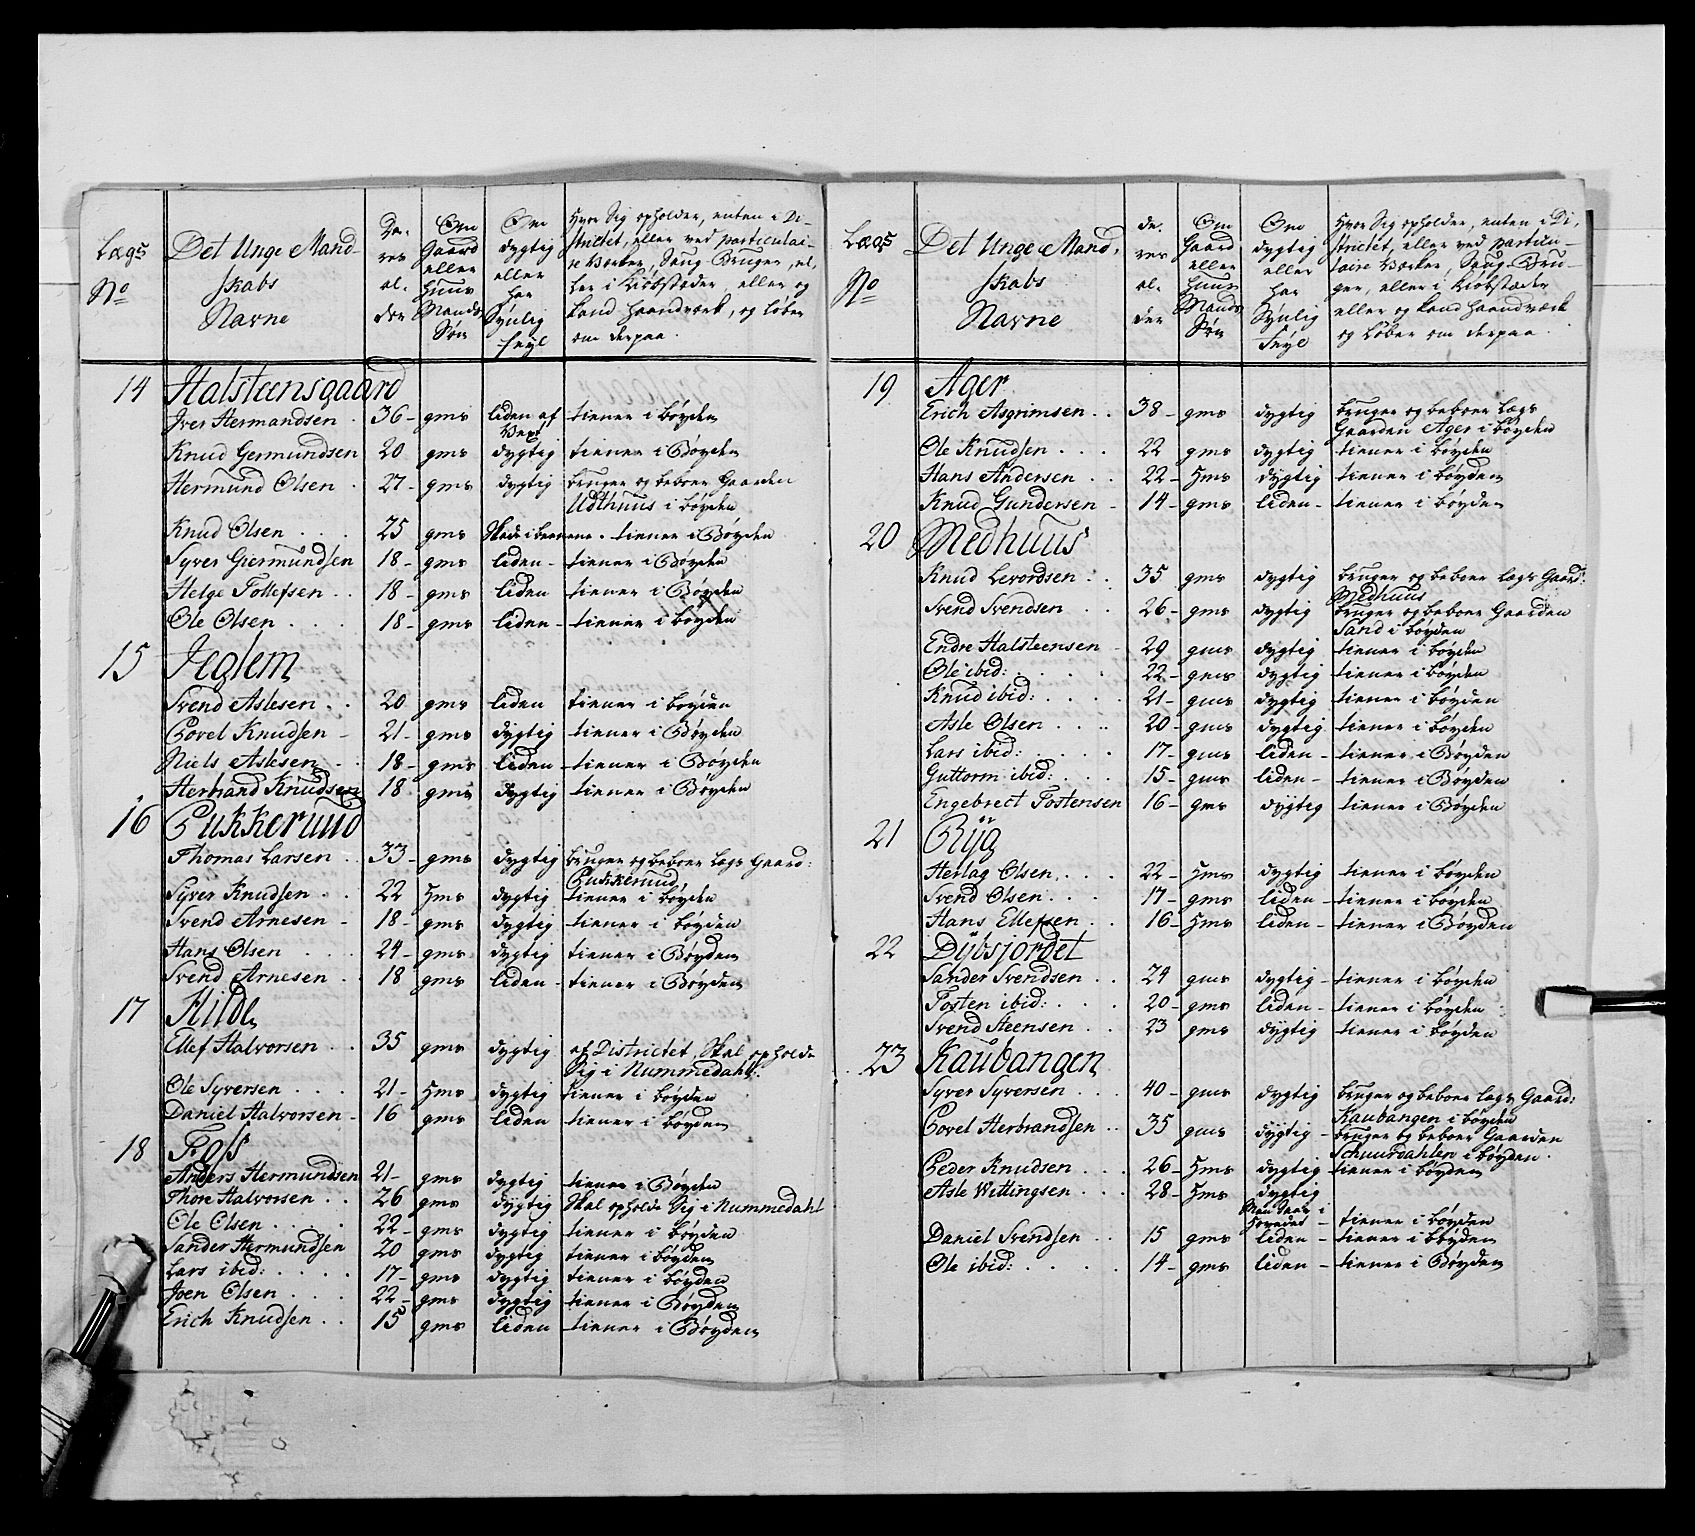 Lægs No | Det Unge Mandskabs Navne | Deres alder | Om Gaard eller Huus Mands Søn | Om dygtig eller har Synlig Feyl | Hvor Sig opholder, enten i Districtet, eller ved particulaire Værker, Saug-Bruger, eller i Kiøbstæder, eller og kand Haandværk, og løber om derpaa.
14 Halsteensgaard
Iver Hermandsen 36 - gms liden af Vext tiener i bøyden
Knud Germundsen 20 gms dygtig tiener i Bøyden
Hermund Olsen 27 - gms dygtig bruger og beboer Gaarden
Udthuus i bøyden
Knud Olsen 25 gms Skade i beenene - tiener i Bøyden
Syver Giermundsen 18 - gms liden - tiener i Bøyden
Helge Tollefsen 18 - gms liden tiener i Bøyden
Ole Olsen 18 - gms liden - tiener i bøyden
15 Jeglem
Svend Aslesen 20 gms liden tiener i bøyden
Povel Knudsen - 21 - gms dygtig tiener i Bøyden
Niels Aslesen - 18 - gms liden - tiener i Bøyden
Herbrand Knudsen 18 gms dygtig tiener i Bøyden
16 Pukkerud
Thomas Larsen 33 - gms dygtig bruger og beboer Lægs Gaard:
Pukkerud
Syver Knudsen 22 Hms dygtig tiener i bøyden
Svend Arnesen - 18 - gms dygtig tiener i bøyden
Hans Olsen 24 - gms dygtig tiener i Bøyden
Svend Arnesen 18 gms liden - tiener i Bøyden
17 Hilde
Ellef Halvorsen 35 gms dygtig af Districtet, Skal opholde
Sig i Nummedahl:
Ole Syversen 21 - Hms dygtig tiener i bøyden
Daniel Halvorsen - 16 gms liden tiener i bøyden
18 Foss
Anders Hermundsen 21 - gms dygtig tiener i Bøyden
Thore Halvorsen 26 gms dygtig Skal opholde Sig i Nummedahl
Ole Olsen 22 - gms dygtig tiener i bøyden
Sander Hermundsen 20 gms dygtig tiener i bøyden
Lars ibid: 17 - gms dygtig tiener i bøyden
Joen Olsen 22 - gms dygtig tiener i Bøyden
Erich Knudsen 15 gms liden - tiener i Bøyden
Lægs No | Det Unge Mandskabs Navne | deres alder | Om Gaard eller Huus Mands Søn | Om dygtig eller har Synlig Feyl | Hvor Sig opholder, enten i Districtet, eller ved particulaire Værker, Saug-Bruger, eller i Kiøbstæder eller og kand Haandværk og løber om derpaa.
19 Ager
Erich Asgrimsen 38 - gms dygtig bruger og beboer Lægs
Gaarden Ager i bøyden
Ole Knudsen 22 gms dygtig tiener i bøyden
Hans Andersen 22 - Hms dygtig tiener i bøyden
Knud Gundersen - 14 - gms liden - tiener i bøyden
20 Medhuus
Knud Levordsen 35 gms dygtig bruger og beboer Lægs Gaard:
Medhuus
Svend Svendsen 26 - gms dygtig bruger og beboer Gaarden
Sand i bøyden
Endre Halsteensen 29 gms dygtig tiener i bøyden
Ole ibid: 22 - gms dygtig tiener i bøyden
Knud ibid: 21 - gms dygtig tiener i bøyden
Asle Olsen 20 - gms dygtig tiener i bøyden
Lars ibid: 17 - gms liden - tiener i Bøyden
Guttorm ibid: 15 - gms liden - tiener i Bøyden
Engebrect Tostensen 16 - gms dygtig tiener i Bøyden
21 Ryg
Herlag Olsen 22 - Hms dygtig tiener i bøyden
Svend Olsen 17 - gms liden - tiener i bøyden
Hans Ellefsen 16 - Hms liden - tiener i Bøyden
22 Dybsjordet
Sander Svendsen 24 gms dygtig - tiener i bøyden
Tosten ibid: 20 - gms liden - tiener i bøyden
Svend Steensen 23 gms dygtig tiener i bøyden
23 Kaubangen
Syver Syversen 40 - gms dygtig bruger og beboer Lægs Gaard:
Kaubangen i bøyden
Povel Herbrandsen 35 gms dygtig - bruger og beboer Gaarden
Schuurdahlen i bøyden
Peder Knudsen 26 - Hms dygtig tiener i bøyden
Asle Wittingsen 28 - Hms dygtig
i Hovedet - tiener i bøyden
Daniel Svendsen 15 gms liden - tiener i bøyden
Ole ibid: 14 - gms liden - tiener i Bøyden